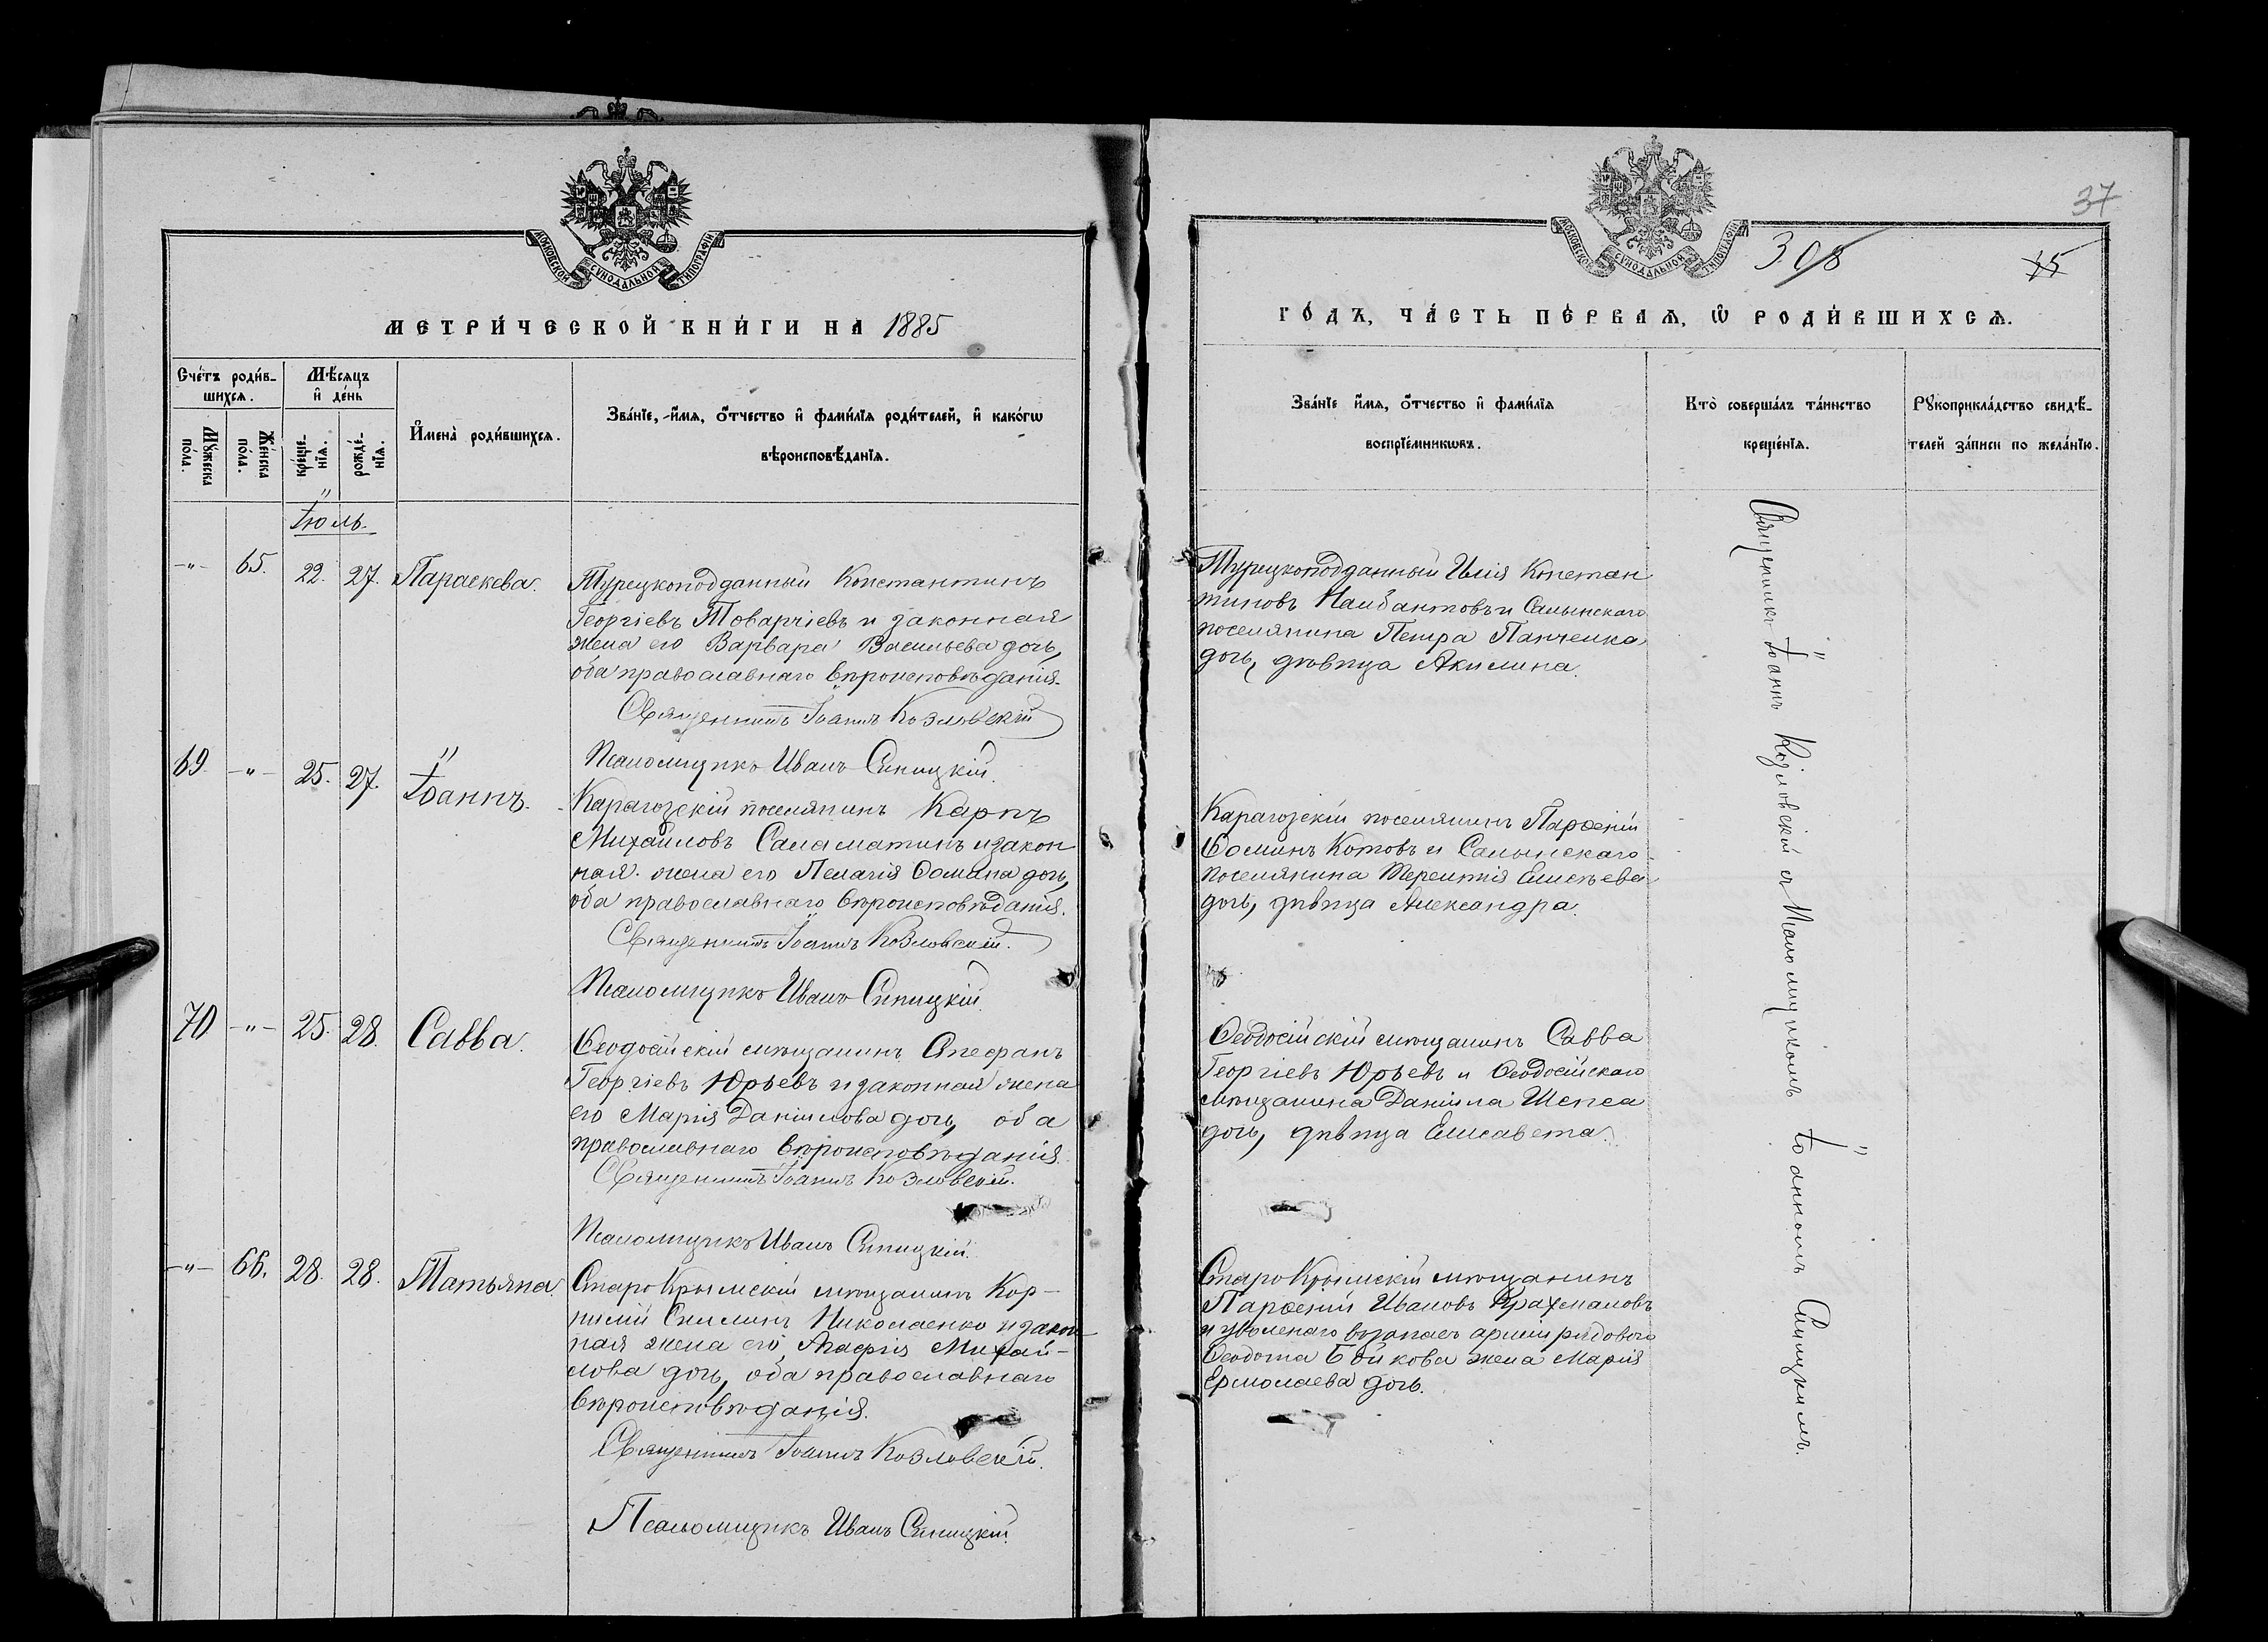 МОСКОВСКОЙ СѴНОДАЛЬНОЙ ТИПОГРАФІИ
МЕТРИ́ЧЕСКОЙ КНИ́ГИ НА 1885
Счётъ роди́в-
шихсѧ.
Мѣ́сѧцъ
и҆ де́нь
Мꙋ́жеска
по́ла.
Же́нска
по́ла.
креще́-
нїѧ.
рожде́-
нїѧ.
И҆мена̀ роди́вшихсѧ.
Зва́нїе, и҆́мѧ, ѻ҆́тчество и҆ фами́лїѧ роди́телей, и҆ како́гѡ
вѣроисповѣ́данїѧ.
Іюль
-"- 65. 22. 27. Параскева.
Турецкоподданный Константинъ
Георгіевъ Товарчіевъ и законная
жена его Варвара Васильева дочь,
оба православнаго вѣроисповѣданія.
Священникъ Іоаннъ Козловскій
Псаломщикъ Иванъ Синицкій.
69. -"- 25. 27. Іоаннъ.
Карагозскій поселянинъ Карпъ
Михайловъ Саламатинъ и закон
ная жена его Пелагія Ѳомина дочь,
оба православнаго вѣроисповѣданія.
Священникъ Іоаннъ Козловскій.
Псаломщикъ Иванъ Синицкій.
70 -"- 25. 28. Савва.
Ѳеодосійскій мѣщанинъ Стефанъ
Георгіевъ Юрьевъ и законная жена
его Марія Даніилова дочь, оба
православнаго вѣроисповѣданія.
Священникъ Іоаннъ Козловскій.
Псаломщикъ Иванъ Синицкій.
-"- 66. 28. 28. Татьяна.
СтароКрымскій мѣщанинъ Кор-
нилій Николаенко и закон-
ная жена его Агафія Михай-
лова дочь, оба православнаго
вѣроисповѣданія.
Священникъ Іоаннъ Козловскій.
Псаломщикъ Иванъ Синицкій.
37
МОСКОВСКОЙ СѴНОДАЛЬНОЙ ТИПОГРАФІИ
308
ГО́ДЪ, ЧА́СТЬ ПЕ́РВАѦ, Ѡ҆ РОДИ́ВШИХСѦ.
Зва́нїе и҆́мѧ, ѻ҆́тчество и҆ фами́лїѧ
воспрїе́мникѡвъ.
Кто̀ соверша́лъ та́инство
креще́нїѧ.
Рꙋкоприкла́дство свидѣ́-
телей за́писи по жела́нїю.
Турецкоподданный Илія Констан
тиновъ и Салынскаго
поселянина Петра Панченка
дочь, дѣвица Акилина.
Карагозскій поселянинъ Парѳеній
Ѳоминъ Котовъ и Салынскаго
поселянина Терентія Елисѣева
дочь, дѣвица Александра.
Ѳеодосійскій мѣщанинъ Савва
Георгіевъ Юрьевъ и Ѳеодосійскаго
мѣщанина Даніила Шепса
дочь, дѣвица Елисавета.
СтароКрымскій мѣщанинъ
Парѳеній Ивановъ Крахмаловъ
и уволенаго взапасъ арміи рядового
Ѳеодота Бойкова жена Марія
Ермолаева дочь.
Священникъ Іоаннъ Козловскій съ Псаломщикомъ Іоанномъ Синицкимъ.